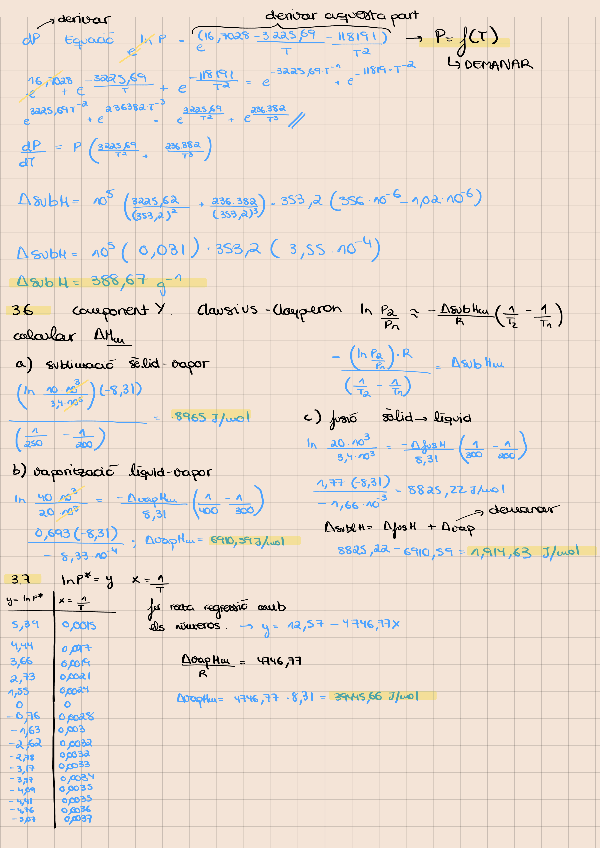 derivar
derivar aquesta part
dP Equació e^(ln P) = e^(16,7028 - 3225,69/T - 118191/T²) → P = f(T)
↳ DEMANAR
e^16,7028 + e^(-3225,69/T) + e^(-118191/T²) = e^(-3225,69·T⁻¹) + e^(-11819·T⁻²)
e^(3225,69T⁻²) + e^(236382·T⁻³) = e^(3225,69/T²) + e^(236.382/T³) //
dP/dT = P (3225,69/T² + 236.382/T³)
ΔsubH = 10⁵ (3225,62/(353,2)² + 236.382/(353,2)³) · 353,2 (356·10⁻⁶ - 1,02·10⁻⁶)
ΔsubH = 10⁵ (0,031) · 353,2 (3,55·10⁻⁴)
ΔsubH = 388,67 g⁻¹
3.6 component Y. Clausius-Clayperon ln P2/P1 ≈ -ΔsubHm/R (1/T2 - 1/T1)
calcular ΔHm
a) sublimació sòlid-vapor
(ln 10·10³/3,4·10³)(-8,31) / (1/250 - 1/200) = 8965 J/mol
-(ln P2/P1)·R / (1/T2 - 1/T1) = ΔsubHm
b) vaporització líquid-vapor
ln 40·10³/20·10³ = -ΔvapHm/8,31 (1/400 - 1/300)
0,693(-8,31) / -8,33·10⁻⁴ ; ΔvapHm = 6910,59 J/mol
c) fusió sòlid → líquid
ln 20·10³/3,4·10³ = -ΔfusH/8,31 (1/300 - 1/200)
1,77 (-8,31) / -1,66·10⁻³ = 8825,22 J/mol
→ demanar
ΔsublH = ΔfusH + Δvap
8825,22 - 6910,59 = 1,914,63 J/mol
3.7 lnP* = y x = 1/T
y = lnP* x = 1/T
5,39 0,0015
4,44 0,0017
3,66 0,0019
2,73 0,0021
1,55 0,0024
0 0
-0,76 0,0028
-1,63 0,003
-2,62 0,0032
-2,78 0,0032
-3,17 0,0033
0,0034
-4,09 0,0035
-4,41 0,0035
-4,76 0,0036
0,0037
fer recta regressió amb
els números. → y = 12,57 - 4746,77x
ΔvapHm/R = 4746,77
ΔvapHm = 4746,77 · 8,31 = 39445,66 J/mol